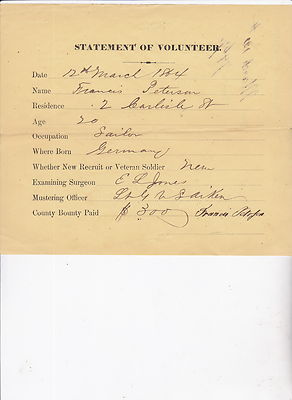 STATEMENT OF VOLUNTEER.
Date 12th March 1864
Name Francis Peterson
Residence 2 Carlisle St
Age 20
Occupation Sailor
Where Born Germany
Whether New Recruit or Veteran Soldier New
Examining Surgeon E L Jones
Mustering Officer Lt G V S Aiken
County Bounty Paid $ 300 Francis